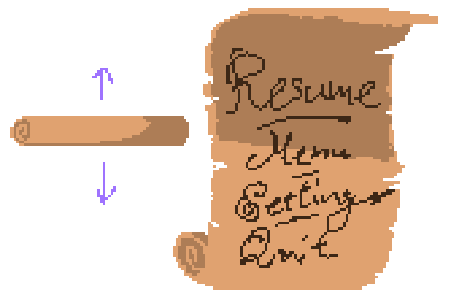 Resume
Menu
Settings
Quit